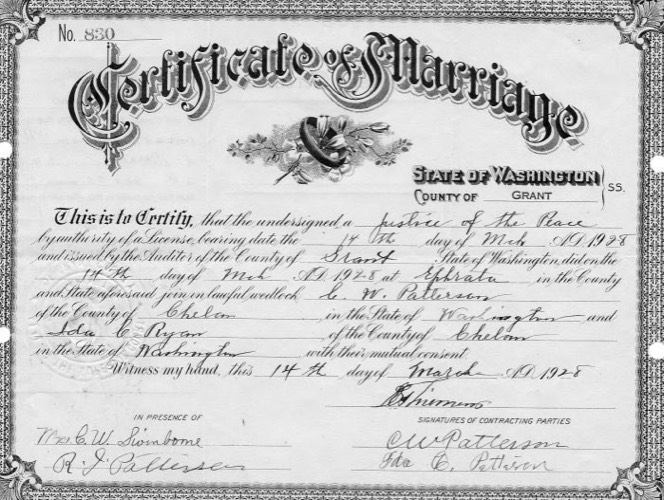 No. 830
Certificate of Marriage
STATE OF WASHINGTON
COUNTY OF GRANT SS.
This is to Certify, that the undersigned a Justice of the Peace
by authority of a License, bearing date the 14th day of Mch A.D. 1928
and issued by the Auditor of the County of Grant State of Washington, did on the
14th day of Mch A.D. 1928 at Ephrata in the County
and State aforesaid join in lawful wedlock C. W. Patterson
of the County of Chelan in the State of Washington and
Ida C Ryan of the County of Chelan
in the State of Washington with their mutual consent.
Witness my hand, this 14th day of March A.D. 1928
IN PRESENCE OF
SIGNATURES OF CONTRACTING PARTIES
Mrs C. W.
CW Patterson
R. J. Patterson
Ida C. Patterson